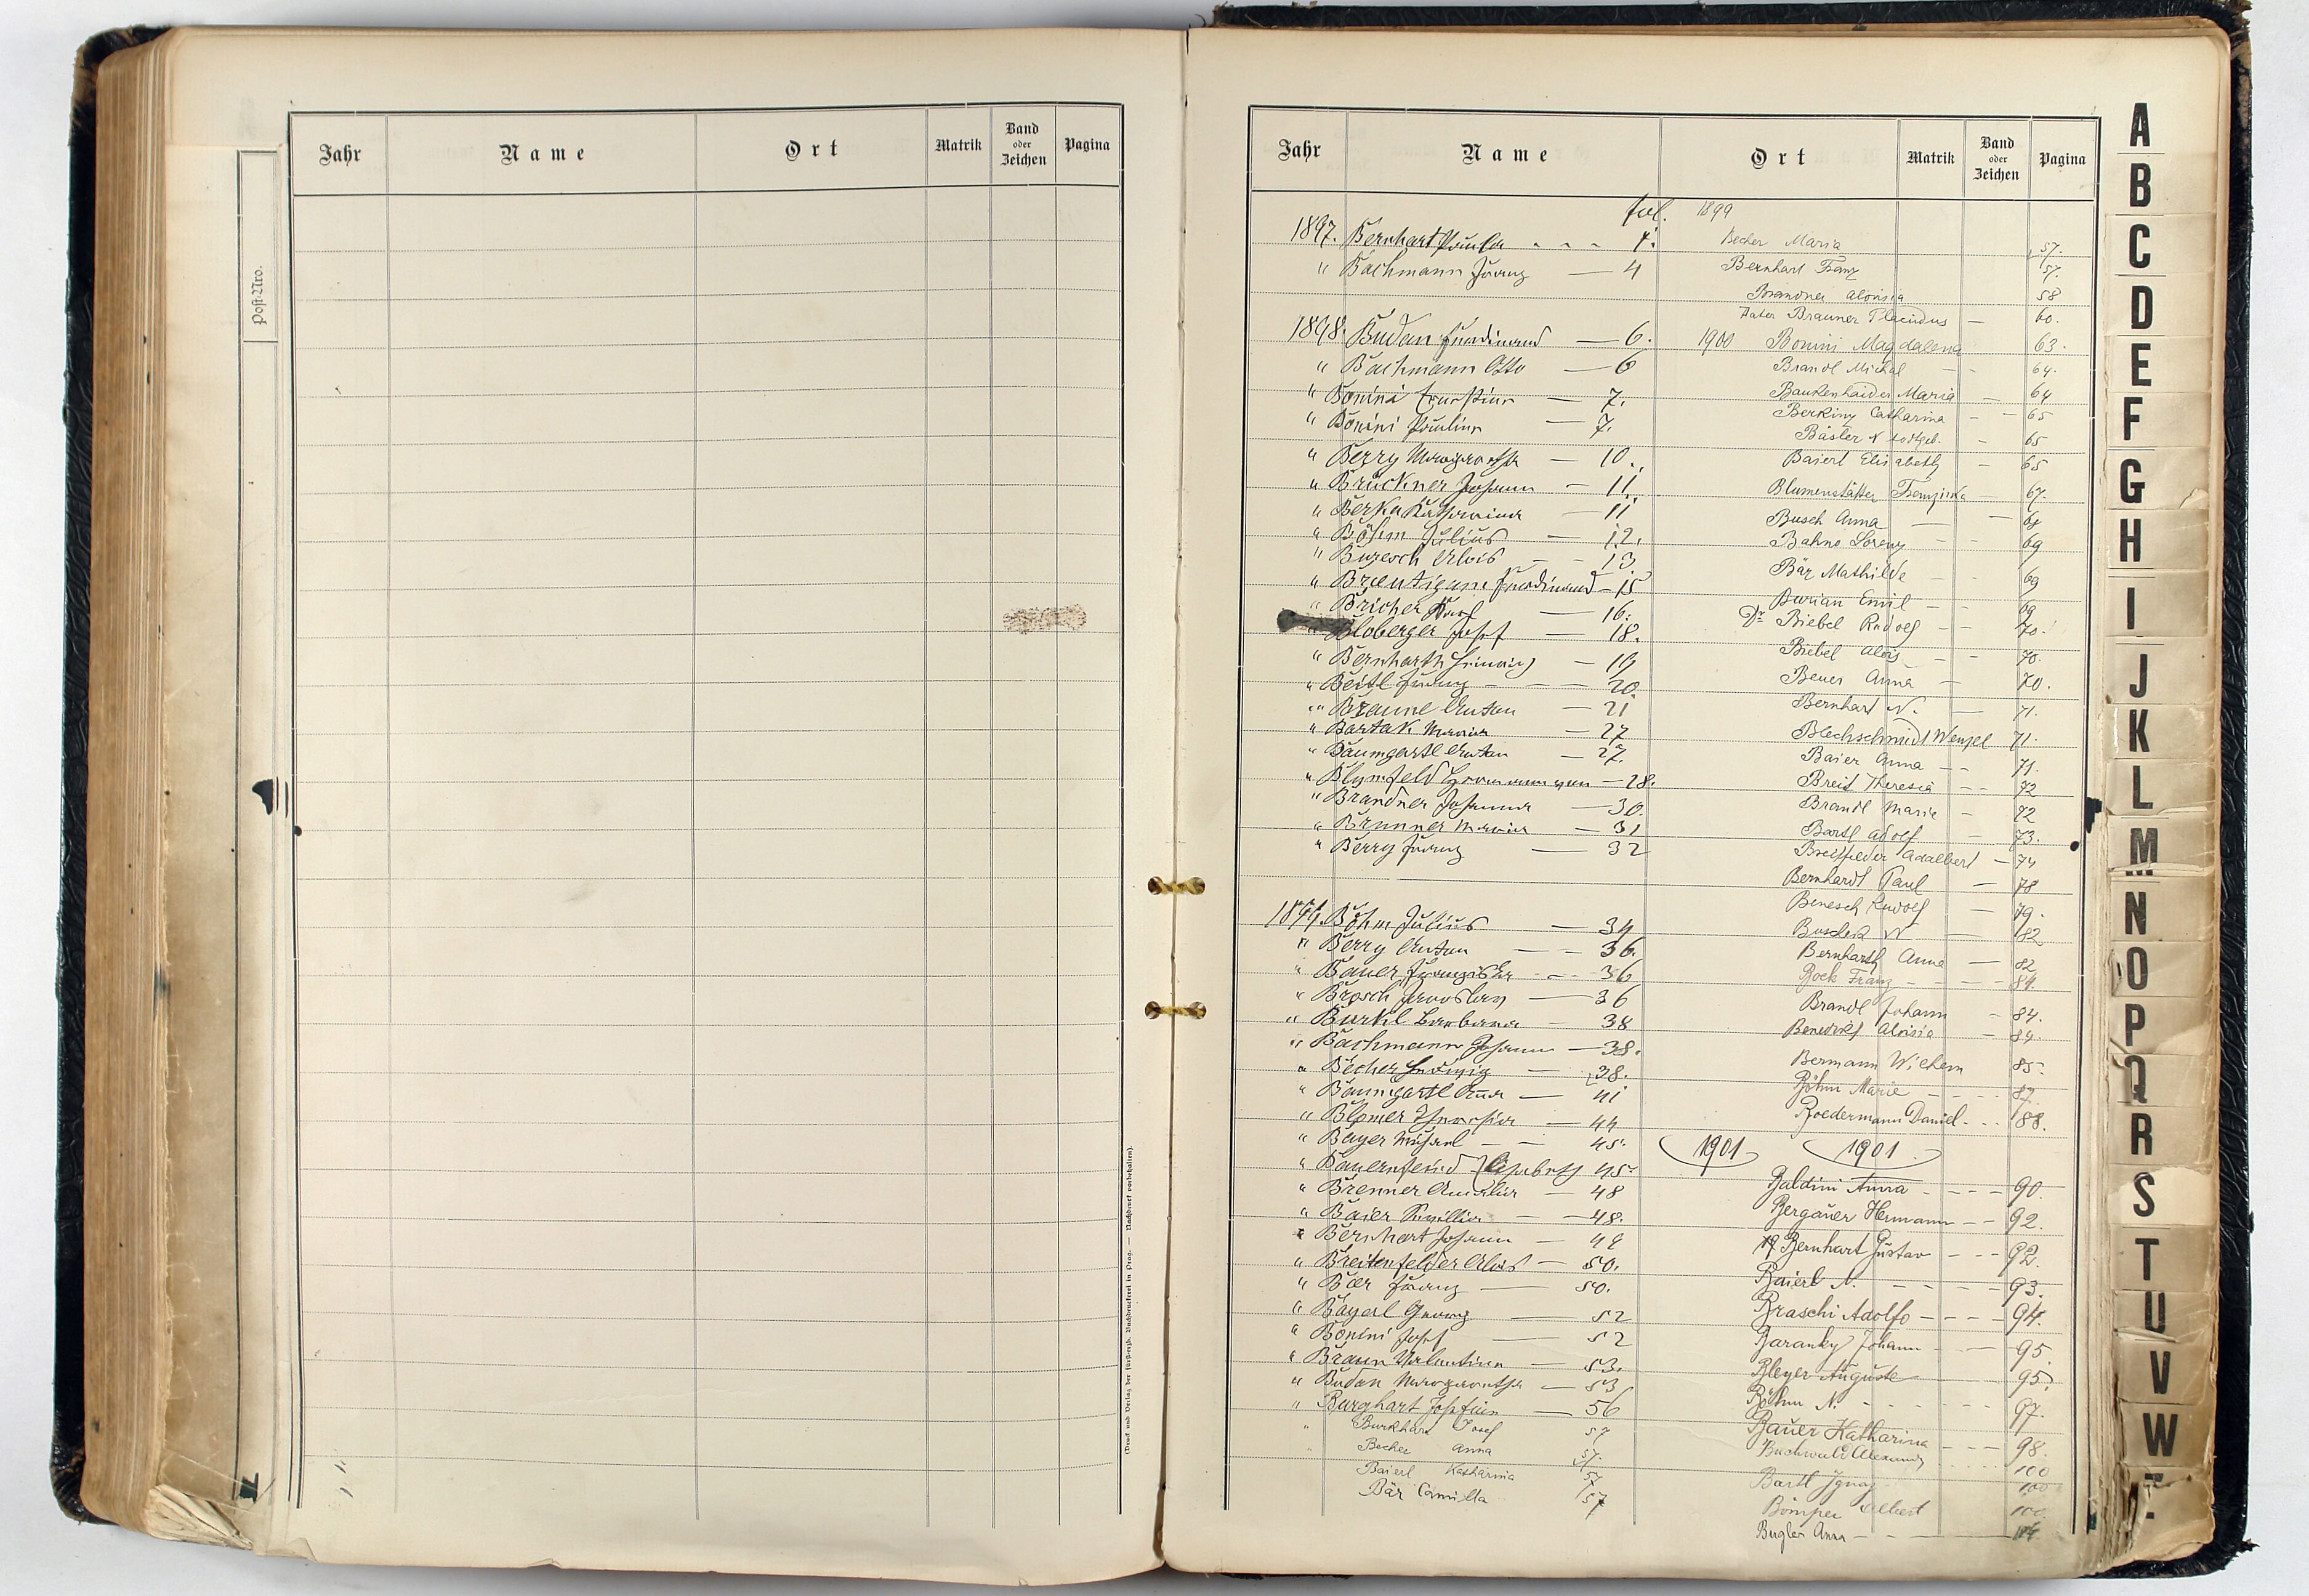 Post-Nro.
Jahr Name Ort Matrik Band oder Zeichen Pagina
(Druck und Verlag der fürsterzb. Buchdruckerei in Prag. — Nachdruck vorbehalten).
Jahr Name Ort Matrik Band oder Zeichen Pagina
fol.
1897. Bernhart Paula 4.
" Bachmann Franz — 4
1898. Budan Ferdinand — 6.
" Bachmann Otto — 6
" Bonini Ernestine — 7.
" Bonini Pauline — 7.
" Berry Margaretha — 10.
" Brückner Johann — 11.
" Berka Katharina — 11
" Böhm Julius — 12.
" Alois — 13
" Braeutigam Ferdinand — 15
" Bricher Karl — 16.
Bloberger Josef — 18.
" Bernharth Heinrich — 19
" Beitl Franz — 20.
" Braune Anton — 21
" Bartak Maria — 27
" Baumgartl Anton — 27.
" Hermann von — 28.
" Brandner Johanna — 30.
" Brunner Maria — 31
" Berry Franz — 32
1899. Böhm Julius — 34
" Berry Anton — 36.
" Bauer Franziska — 36
" Brosch Jaroslav — 36
" Burkl Barbara — 38
" Bachmann Johann — 38.
" Becher Hedwig — 38.
" Baumgartl Anna — 41
" Theresia — 44
" Bayer Michael — 45.
" Bauernfeind Elisabeth 45.
" Brenner Amalia — 48
" Baier — 48.
" Bernhart Johann — 49
" Breitenfelder Alois — 50.
" Bär Franz — 50.
" Bayerl Georg — 52
" Bonini Josef — 52
" Braun Valentina — 53.
" Budan Margaretha — 53
" Burghart Josefine — 56
" Burkhart Josef 57
" Becher Anna 57.
Baierl Katharina 57
Bär Camilla 57
1899
Becher Maria 57.
Bernhart Franz 57.
Brandner Aloisia 58
Pater Brauner Placidus — 60.
1900 Bonini Magdalena 63.
Brandl Michal 64.
Maria — 64
Catharina — 65
Bäsler N todtgeb. — 65
Baierl Elisabeth — 65
Blumenstätter Franziska 67.
Busch Anna —
Bahno Lorenz — 69
Bär Mathilde 69
Burian Emil — 69
Dr. Biebel Rudolf — 70.
Biebel Alois — 70.
Beuer Anna — 70.
Bernhart N. — 71.
Blechschmidt Wenzel 71.
Baier Anna — 71.
Breit Theresia — 72
Brandl Maria — 72
Bartl Adolf — 73.
Breitfelder Adalbert — 74
Bernhardt Paul — 78
Benesch Rudolf — 79.
N — 82
Bernharth Anna — 82
Bock Franz — 84.
Brandl Johann — 84.
Benedikt Aloisia — 84.
Bermann Wilhem 85.
Böhm Marie — 87.
Boedermann Daniel — 88.
1901 1901
Baldini Anna — 90.
Bergauer Hermann — 92.
Bernhart Gustav — 92.
Baierl N. — 93.
Braschi Adolfo — 94.
Baranky Johann — 95.
Bleyer Auguste 95.
Böhm N. — 97.
Bauer Katharina — 98.
Buchwald Alexander 100
Bartl Ignaz 100
Albert 100.
Bugler Anna —
A
B
C
D
E
F
G
H
I
J
K
L
M
N
O
P
Q
R
S
T
U
V
W